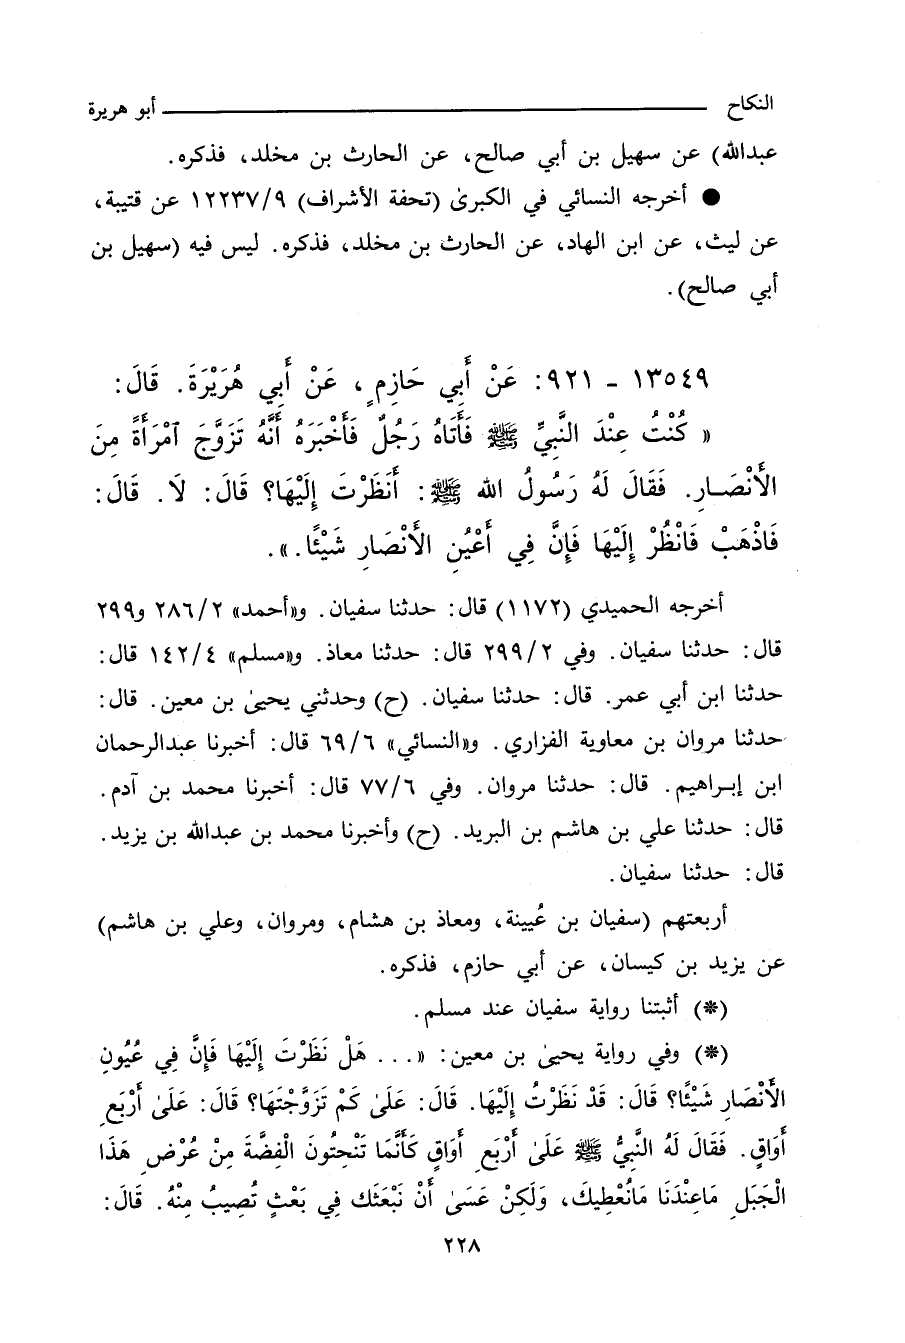 النكاح ـــــــــــــــــــــــــــــــــــــــــــ أبو هريرة
عبدالله) عن سهيل بن أبي صالح، عن الحارث بن مخلد، فذكره.
● أخرجه النسائي في الكبرىٰ (تحفة الأشراف) ١٢٢٣٧/٩ عن قتيبة،
عن ليث، عن ابن الهاد، عن الحارث بن مخلد، فذكره. ليس فيه (سهيل بن
أبي صالح).
١٣٥٤٩ ـ ٩٢١: عَنْ أَبِي حَازِمٍ، عَنْ أَبِي هُرَيْرَةَ. قَالَ:
« كُنْتُ عِنْدَ النَّبِيِّ ﷺ فَأَتَاهُ رَجُلٌ فَأَخْبَرَهُ أَنَّهُ تَزَوَّجَ ٱمْرَأَةً مِنَ
الأَنْصَارِ. فَقَالَ لَهُ رَسُولُ الله ﷺ: أَنَظَرْتَ إِلَيْهَا؟ قَالَ: لَا. قَالَ:
فَاذْهَبْ فَانْظُرْ إِلَيْهَا فَإِنَّ فِي أَعْيُنِ الأَنْصَارِ شَيْئًا.».
أخرجه الحميدي (١١٧٢) قال: حدثنا سفيان. و«أحمد» ٢٨٦/٢ و٢٩٩
قال: حدثنا سفيان. وفي ٢٩٩/٢ قال: حدثنا معاذ. و«مسلم» ١٤٢/٤ قال:
حدثنا ابن أبي عمر. قال: حدثنا سفيان. (ح) وحدثني يحيىٰ بن معين. قال:
حدثنا مروان بن معاوية الفزاري. و«النسائي» ٦٩/٦ قال: أخبرنا عبدالرحمان
ابن إبراهيم. قال: حدثنا مروان. وفي ٧٧/٦ قال: أخبرنا محمد بن آدم.
قال: حدثنا علي بن هاشم بن البريد. (ح) وأخبرنا محمد بن عبدالله بن يزيد.
قال: حدثنا سفيان.
أربعتهم (سفيان بن عُيينة، ومعاذ بن هشام، ومروان، وعلي بن هاشم)
عن يزيد بن كيسان، عن أبي حازم، فذكره.
(*) أثبتنا رواية سفيان عند مسلم.
(*) وفي رواية يحيىٰ بن معين: «... هَلْ نَظَرْتَ إِلَيْهَا فَإِنَّ فِي عُيُونِ
الأَنْصَارِ شَيْئًا؟ قَالَ: قَدْ نَظَرْتُ إِلَيْهَا. قَالَ: عَلَىٰ كَمْ تَزَوَّجْتَهَا؟ قَالَ: عَلَىٰ أَرْبَعِ
أَوَاقٍ. فَقَالَ لَهُ النَّبِيُّ ﷺ عَلَىٰ أَرْبَعِ أَوَاقٍ كَأَنَّمَا تَنْحِتُونَ الْفِضَّةَ مِنْ عُرْضِ هَذَا
الْجَبَلِ مَاعِنْدَنَا مَانُعْطِيكَ، وَلَكِنْ عَسَىٰ أَنْ نَبْعَثَكَ فِي بَعْثٍ تُصِيبُ مِنْهُ. قَالَ:
٢٢٨